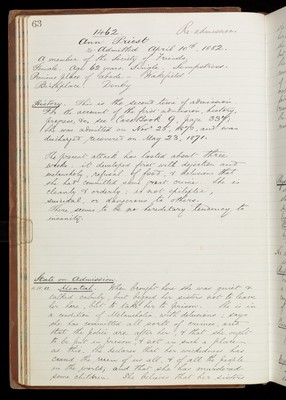 63
1462 Re-admission
Ann Priest
Re-Admitted April 10th 1882.
A member of the Society of Friends,
Female. Age 62 years. Single.
Previous place of abode. Wakefield
Birthplace Denby
History. This is the second time of admission.
For the account of the first admission, history,
progress, &c see Case Book 9, page 339.
She was admitted on Nov 25, 1870, and was
discharged, recovered on May 23, 1871.
The present attack has lasted about three
weeks: it developed first with depression and
melancholy, refusal of food, & delusions that
she had committed some great crime. She is
cleanly & orderly; is not epileptic,
suicidal, or dangerous to others.
There seems to be no hereditary tendency to
insanity.
State on Admission
Mental. When brought here she was quiet &
talked calmly, but begged her sister not to leave
her here, but to take her to prison. She is in
a condition of Melancholia, with delusions; says
she has committed all sorts of crimes, and
that the police are after her, & that she ought
to be put in prison, & not in such a place
as this. She declares that her wickedness has
caused the ruin of us all, & of all the people
in the world, and that she has murdered
some children. She believes that her sisters